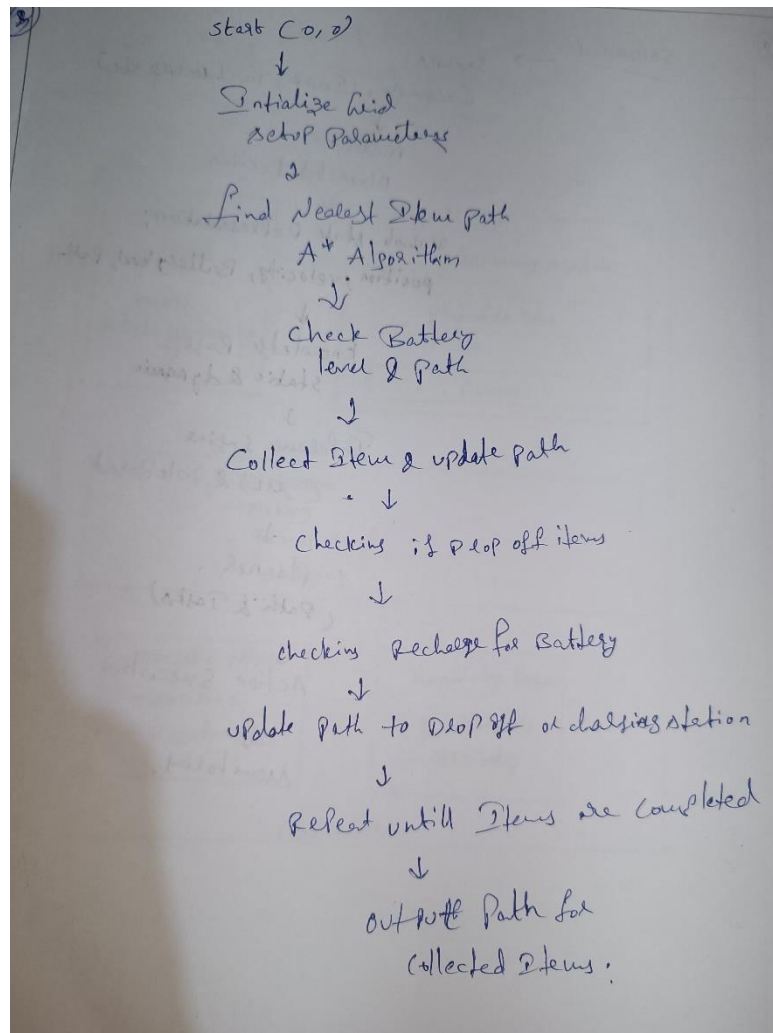 Start (0,0)
↓
Intialize Grid
setup Parameters
↓
find Nearest Item path
A* Algorithm
↓
Check Battery
level & path
↓
Collect Item & update path
↓
Checking if Drop off items
↓
checking Recharge for Battery
↓
update path to Drop off or charging station
↓
Repeat untill Items are completed
↓
output Path for
Collected Items.